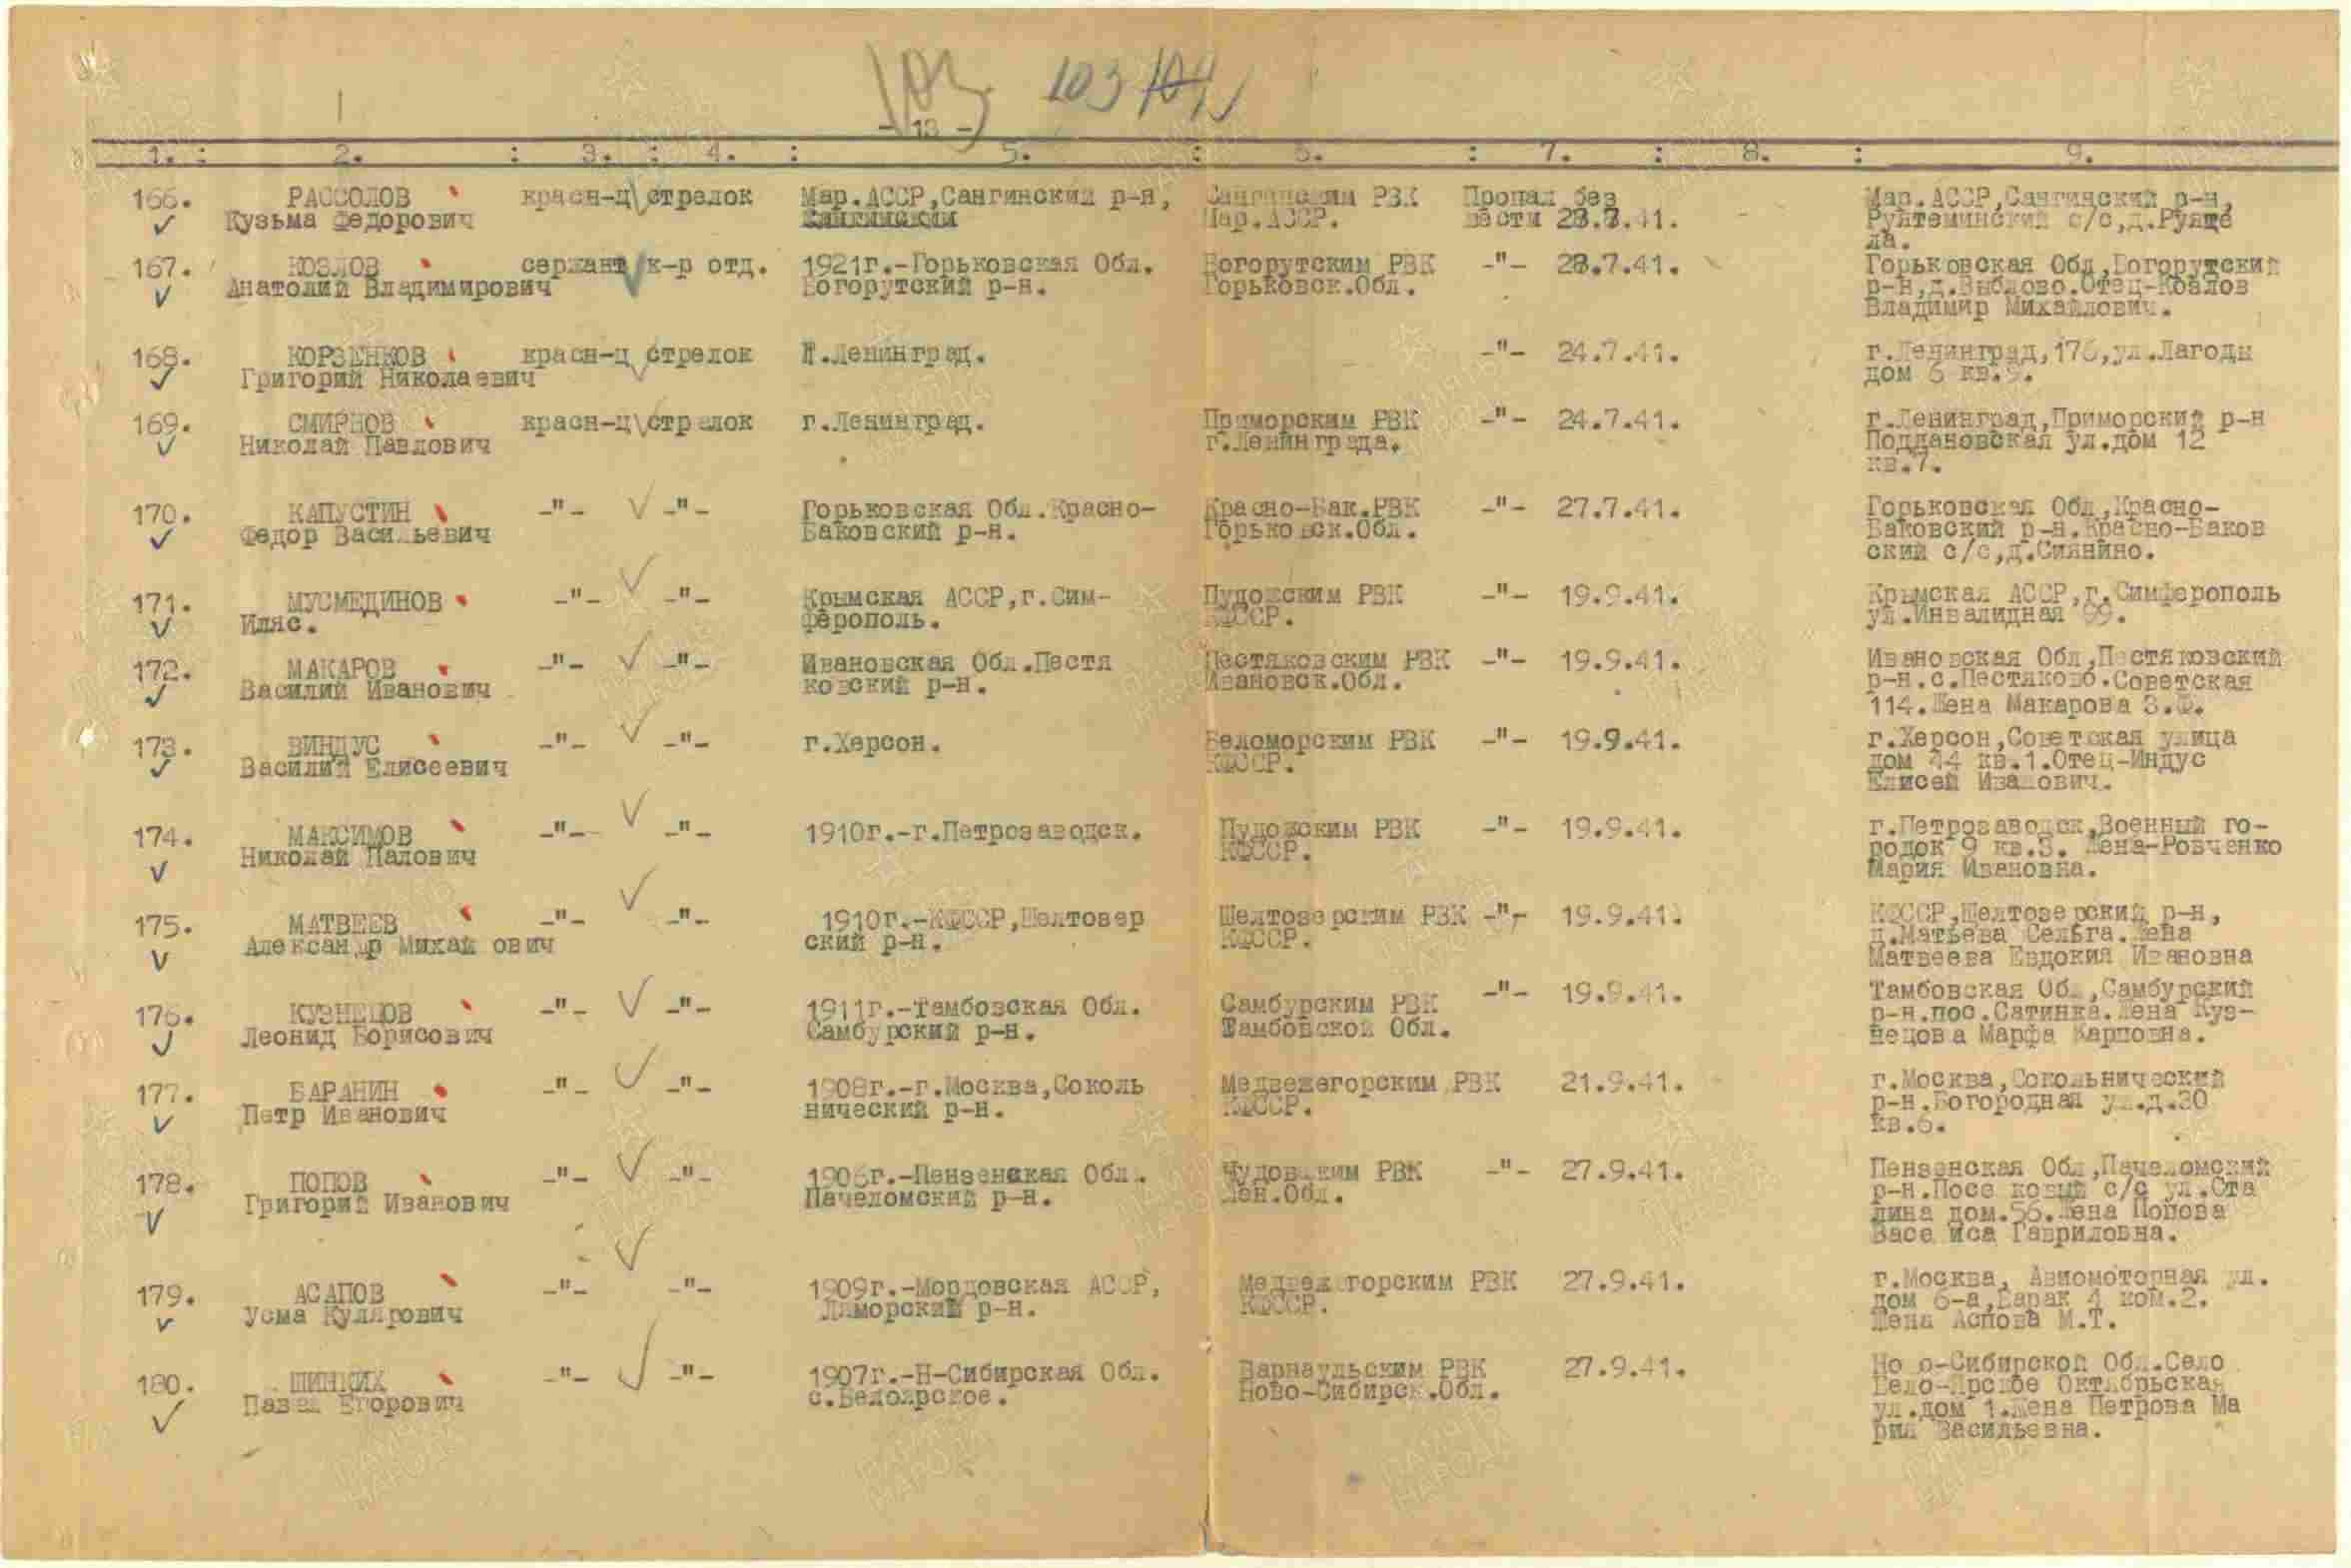 103 104
- 13 -
1. : 2. : 3. : 4. : 5. : 6. : 7. : 8. : 9.
166. РАССОЛОВ красн-ц стрелок Мар.АССР,Сангинский р-н, Сангинским РВК Пропал без Мар.АССР,Сангинский р-н,
Кузьма Федорович Мар.АССР. вести 28.7.41. с/с,д.
ла.
167. КОЗЛОВ сержант к-р отд. 1921г.-Горьковская Обл. Богорутским РВК -"- 28.7.41. Горьковская Обл,Богорутский
Анатолий Владимирович Богорутский р-н. Горьковск.Обл. р-н,д.Выблово.Отец-Козлов
Владимир Михайлович.
168. КОРЗЕНКОВ красн-ц стрелок г.Ленинград. -"- 24.7.41. г.Ленинград,176,ул.Лагоды
Григорий Николаевич дом 6 кв.9.
169. СМИРНОВ красн-ц стрелок г.Ленинград. Приморским РВК -"- 24.7.41. г.Ленинград,Приморский р-н
Николай Павлович г.Ленинграда. Поддановская ул.дом 12
кв.7.
170. КАПУСТИН -"- -"- Горьковская Обл.Красно- Красно-Бак.РВК -"- 27.7.41. Горьковская Обл,Красно-
Федор Васильевич Баковский р-н. Горьковск.Обл. Баковский р-н.Красно-Баков
ский с/с,д.Сиянино.
171. МУСМЕДИНОВ -"- -"- Крымская АССР,г.Сим- Пудожским РВК -"- 19.9.41. Крымская АССР,г.Симферополь
Иляс. ферополь. КФССР. ул.Инвалидная 99.
172. МАКАРОВ -"- -"- Ивановская Обл.Пестя Пестяковским РВК -"- 19.9.41. Ивановская Обл,Пестяковский
Василий Иванович ковский р-н. Ивановск.Обл. р-н.с.Пестяково.Советская
114.Жена Макарова З.Ф.
173. ВИНДУС -"- -"- г.Херсон. Беломорским РВК -"- 19.9.41. г.Херсон,Советская улица
Василий Елисеевич КФССР. дом 44 кв.1.Отец-Индус
Елисей Иванович.
174. МАКСИМОВ -"- -"- 1910г.-г.Петрозаводск. Пудожским РВК -"- 19.9.41. г.Петрозаводск,Военный го-
Николай Палович КФССР. родок 9 кв.3. Жена-Ровченко
Мария Ивановна.
175. МАТВЕЕВ -"- -"- 1910г.-КФССР,Шелтозер Шелтозерским РВК -"- 19.9.41. КФССР,Шелтозерский р-н,
Александр Михай ович ский р-н. КФССР. д.Матьева Сельга.Жена
Матвеева Евдокия Ивановна
176. КУЗНЕЦОВ -"- -"- 1911г.-Тамбовская Обл. Самбурским РВК -"- 19.9.41. Тамбовская Обл,Самбурский
Леонид Борисович Самбурский р-н. Тамбовской Обл. р-н.пос.Сатинка.Жена Куз-
нецова Марфа Карповна.
177. БАРАНИН -"- -"- 1908г.-г.Москва,Соколь Медвежегорским РВК 21.9.41. г.Москва,Сокольнический
Петр Иванович нический р-н. КФССР. р-н.Богородная ул.д.30
кв.6.
178. ПОПОВ -"- -"- 1906г.-Пензенская Обл. Чудовским РВК -"- 27.9.41. Пензенская Обл,Пачеломский
Григорий Иванович Пачеломский р-н. Лен.Обл. р-н.Посе ковый с/с ул.Ста
лина дом.56.Жена Попова
Васе иса Гавриловна.
179. АСАПОВ -"- -"- 1909г.-Мордовская АССР, Медвежегорским РВК 27.9.41. г.Москва, Авиомоторная ул.
Усма Кулярович р-н. КФССР. дом 6-а,Барак 4 ком.2.
Жена Аспова М.Т.
180. ШИНКИХ -"- -"- 1907г.-Н-Сибирская Обл. Барнаульским РВК 27.9.41. Но о-Сибирской Обл.Село
Павел Егорович с.Белоярское. Ново-Сибирск.Обл. Бело-Ярское Октябрьская
ул.дом 1.Жена Петрова Ма
рия Васильевна.